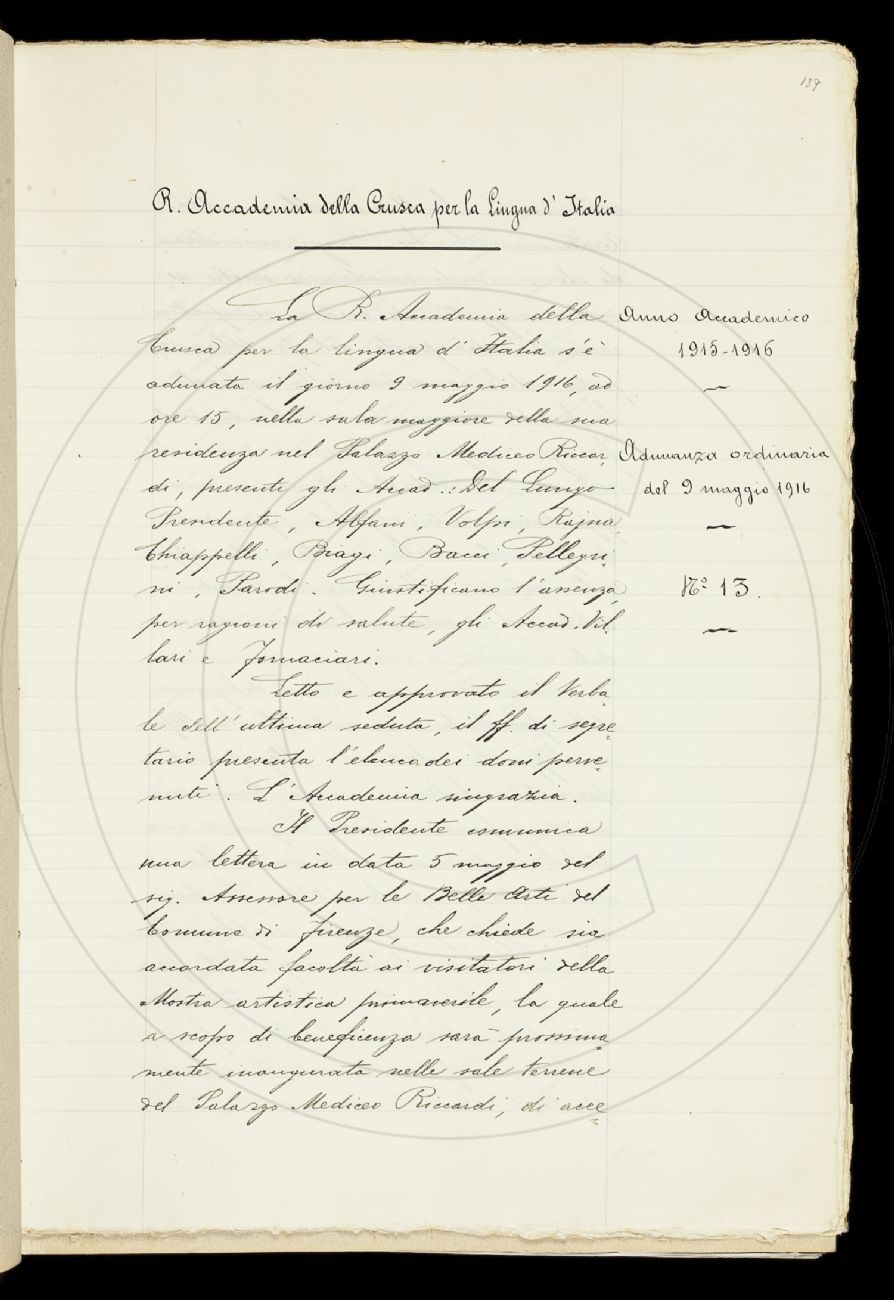 139
R. Accademia della Crusca per la Lingua d'Italia
La R. Accademia della
Crusca per la lingua d'Italia s'è
adunata il giorno 9 maggio 1916, ad
ore 15, nella sala maggiore della sua
residenza nel Palazzo Mediceo Riccar
di, presenti gli Accad.: Del Lungo
Presidente, Alfani, Volpi, Rajna,
Chiappelli, Biagi, Bacci, Pellegri
ni, Parodi. Giustificano l'assenza,
per ragioni di salute, gli Accad. Vil
lari e Fornaciari.
Letto e approvato il Verba
le dell'ultima seduta, il ff. di segre
tario presenta l'elenco dei doni perve
nuti. L'Accademia ringrazia.
Il Presidente comunica
una lettera in data 5 maggio del
sig. Assessore per le Belle Arti del
Comune di Firenze, che chiede sia
accordata facoltà ai visitatori della
Mostra artistica primaverile, la quale
a scopo di beneficenza sarà prossima
mente inaugurata nelle sale terrene
del Palazzo Mediceo Riccardi, di acce
Anno Accademico
1915-1916
Adunanza ordinaria
del 9 maggio 1916
N.º 13.